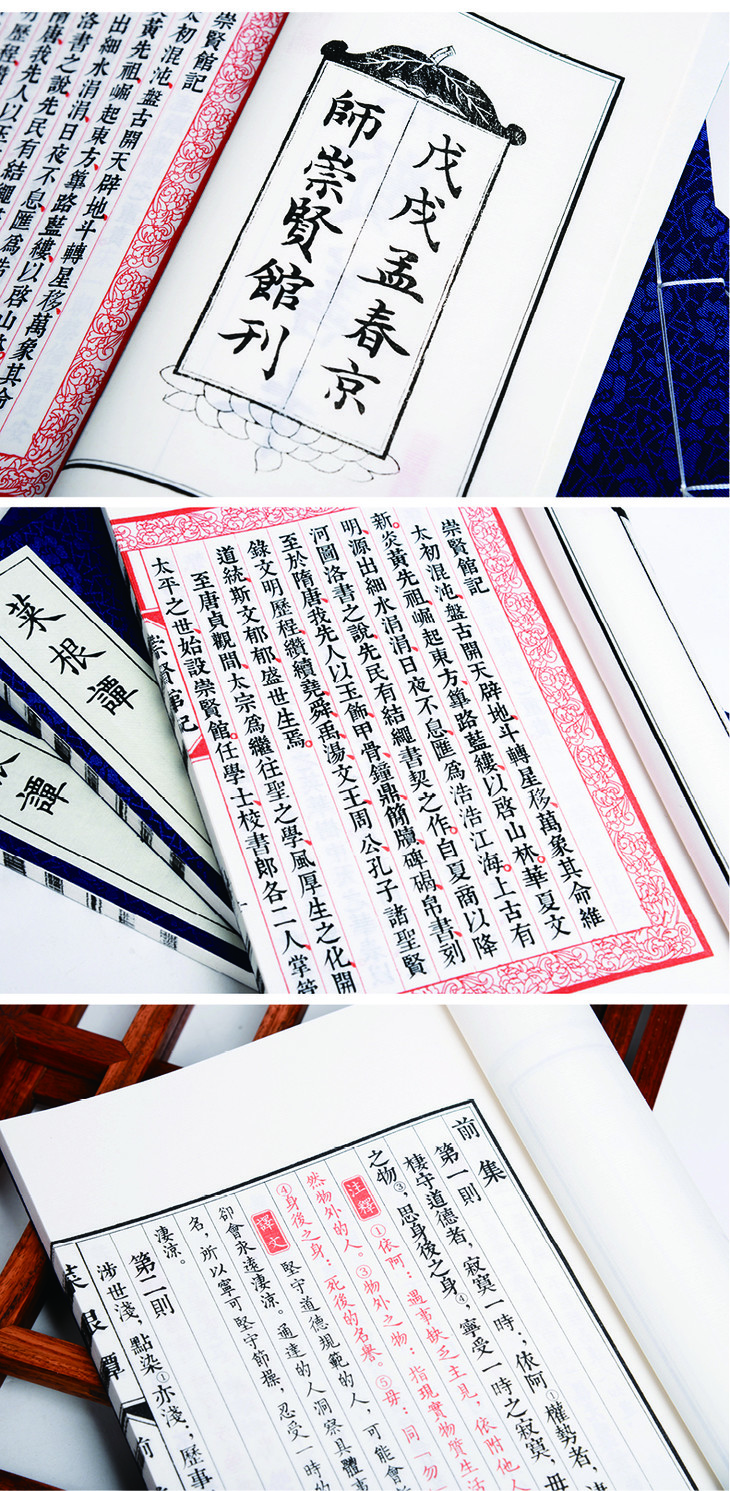 戊戌孟春京
師崇賢館刊
崇賢館記
太初混沌、盤古開天辟地、斗轉星移、萬象其命
黃先祖、崛起東方、篳路藍縷、以啓山林。
出細水涓涓、日夜不息、匯爲浩
洛書之說、先民有結繩
隋唐、我先人以玉
歷程、纘
崇賢館記
太初混沌、盤古開天辟地、斗轉星移、萬象其命維
新。炎黃先祖、崛起東方、篳路藍縷、以啓山林。華夏文
明、源出細水涓涓、日夜不息、匯爲浩浩江海。上古有
河圖洛書之說、先民有結繩書契之作。自夏商以降
至於隋唐、我先人以玉飾、甲骨、鐘鼎、簡牘、碑碣、帛書、刻
錄文明歷程、纘續堯、舜、禹、湯、文王、周公、孔子諸聖賢
道統、斯文郁郁、盛世生焉。
至唐貞觀間、太宗爲繼往聖之學、風厚生之化、開
太平之世、始設崇賢館。任學士、校書郎各二人、掌管
崇賢館記
菜根譚
根譚
前集
第一則
棲守道德者，寂寞一時；依阿①權勢者，淒
之物③，思身後之身④，寧受一時之寂寞，毋
注釋 ①依阿：遇事缺乏主見，依附他人
然物外的人。③物外之物：指現實物質生活
④身後之身：死後的名譽。⑤毋：同「勿
譯文 堅守道德規範的人，可能會
卻會永遠淒涼。通達的人洞察具體事
名，所以寧可堅守節操，忍受一時的
淒涼。
第二則
涉世淺，點染①亦淺；歷事
菜根譚
前